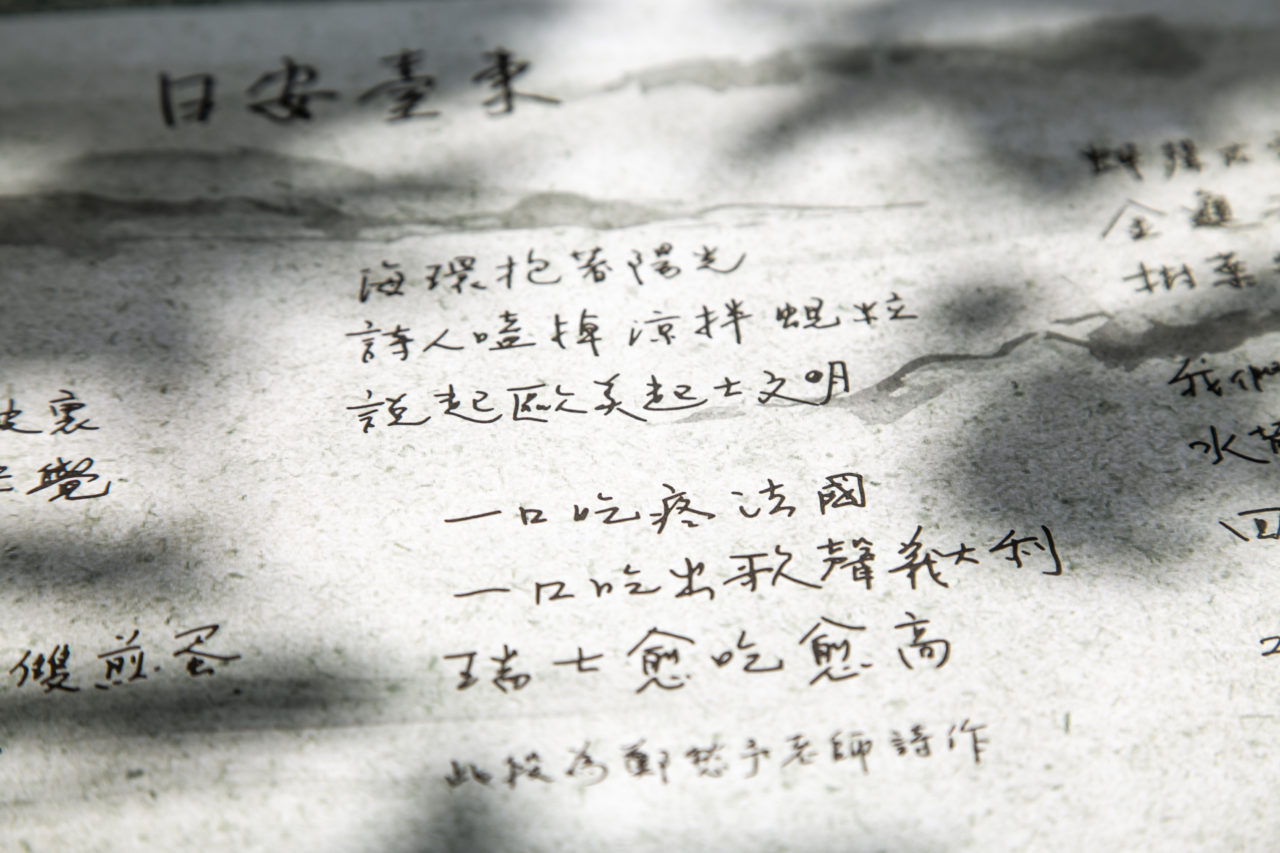 日安臺東
海環抱著陽光
詩人嗑掉涼拌蜆粒
說起歐美起士文明
一口吃疼法國
一口吃出歌聲義大利
瑞士愈吃愈高
此段為鄭愁予老師詩作
裏
覺
雙煎蛋
金
樹葉
我們
水